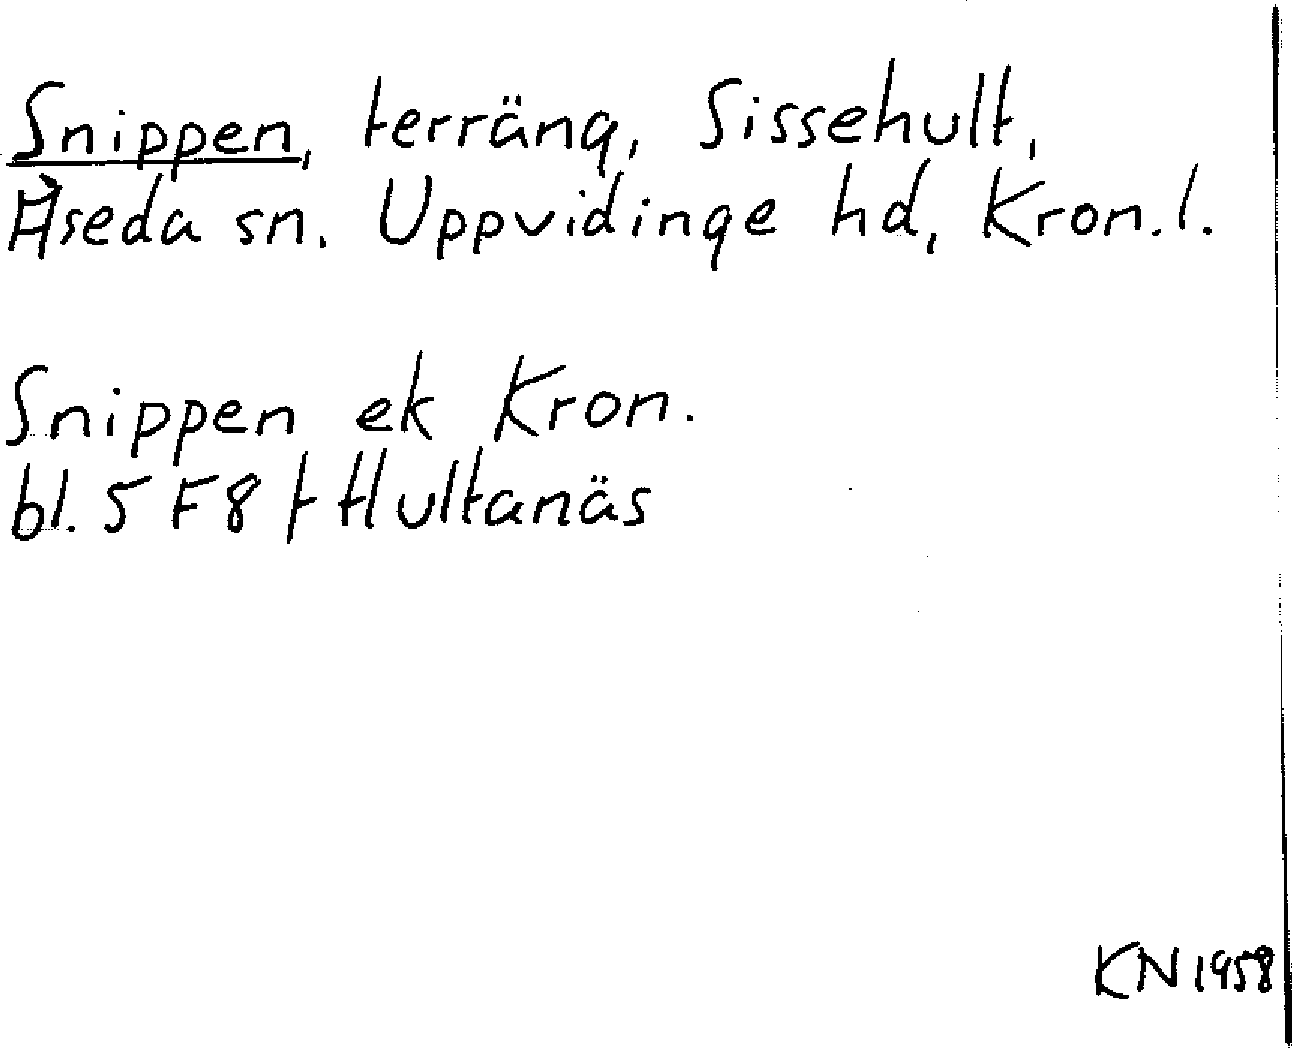 Snippen, terräng, Sissehult,
Åseda sn. Uppvidinge hd, Kron.l.
Snippen ek Kron.
bl. 5 F 8 f Hultanäs
KN 1958